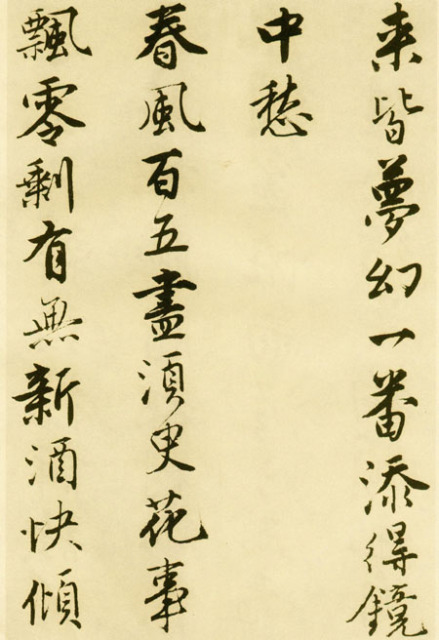 来皆夢幻一番添得鏡
中愁
春風百五盡須臾花事
飄零剩有無新酒快傾